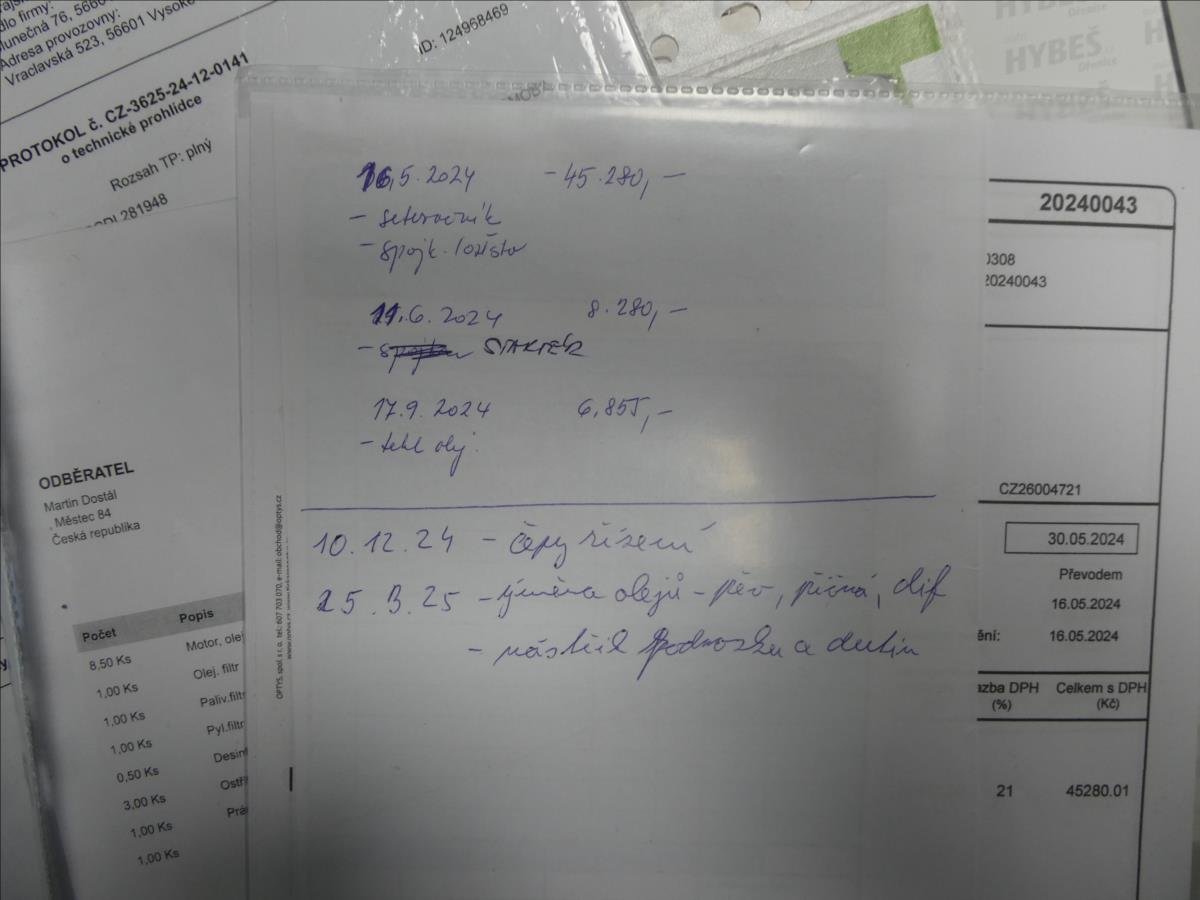 dlo firmy:
lunečná 76, 5660
Adresa provozovny:
Vraclavská 523, 56601 Vysoké
PROTOKOL č. CZ-3625-24-12-0141
o technické prohlídce
Rozsah TP: plný
281948
ID: 124968469
HYBEŠ
16.5.2024 - 45.280,-
- setrvačník
- spojk. ložisko
11.6.2024 8.280,-
- STARTÉR
17.9.2024 6.855,-
- tekl olej.
10.12.24 - čepy řízení
25.3.25 - výměna olejů - přev, příčná, dif
- nástřik podvozku a dutin
OPTYS, spol. s r. o. tel.: 607 703 070, e-mail: obchod@optys.cz
ODBĚRATEL
Martin Dostál
, Městec 84
Česká republika
Počet Popis
8,50 Ks Motor, ole
1,00 Ks Olej. filtr
1,00 Ks Paliv.filtr
1,00 Ks Pyl.filtr
0,50 Ks Desin
3,00 Ks Ostř
1,00 Ks Prá
1,00 Ks
20240043
0308
20240043
CZ26004721
30.05.2024
Převodem
16.05.2024
ění: 16.05.2024
azba DPH Celkem s DPH
(%) (Kč)
21 45280.01